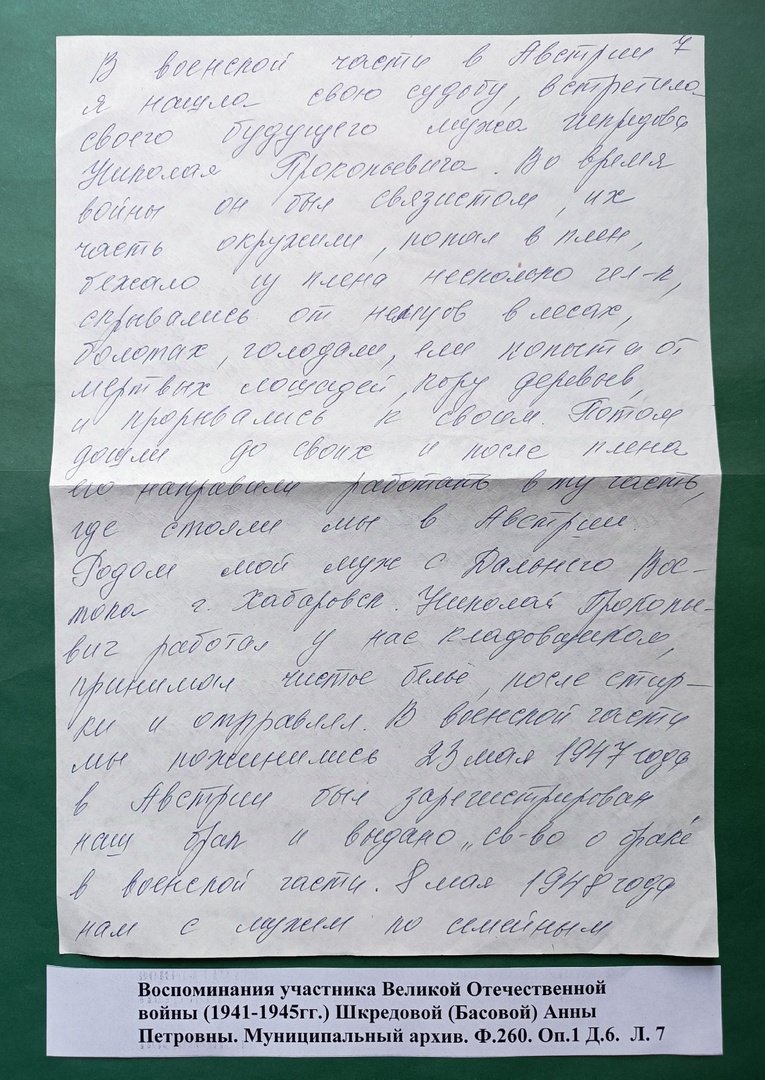 7
В военской части в Австрии
я нашла свою судьбу, встретила
своего будущего мужа Шкредова
Николая Прокопьевича. Во время
войны он был связистом, их
часть окружили, попал в плен,
бежало из плена несколько чел-к,
скрывались от немцев в лесах,
болотах, голодали, ели копыта от
мертвых лошадей, кору деревьев,
и прорывались к своим. Потом
дошли до своих и после плена
его направили работать в ту часть,
где стояли мы в Австрии.
Родом мой муж с Дальнего Вос-
тока г. Хабаровск. Николай Прокопь-
вич работал у нас кладовщиком,
принимал чистое бельё, после стир-
ки и отправлял. В военской части
мы поженились 23 мая 1947 года
в Австрии был зарегистрирован
наш брак и выдано „св-во о браке
в военской части. 8 мая 1948 года
нам с мужем по семейным
Воспоминания участника Великой Отечественной
войны (1941-1945гг.) Шкредовой (Басовой) Анны
Петровны. Муниципальный архив. Ф.260. Оп.1 Д.6. Л. 7